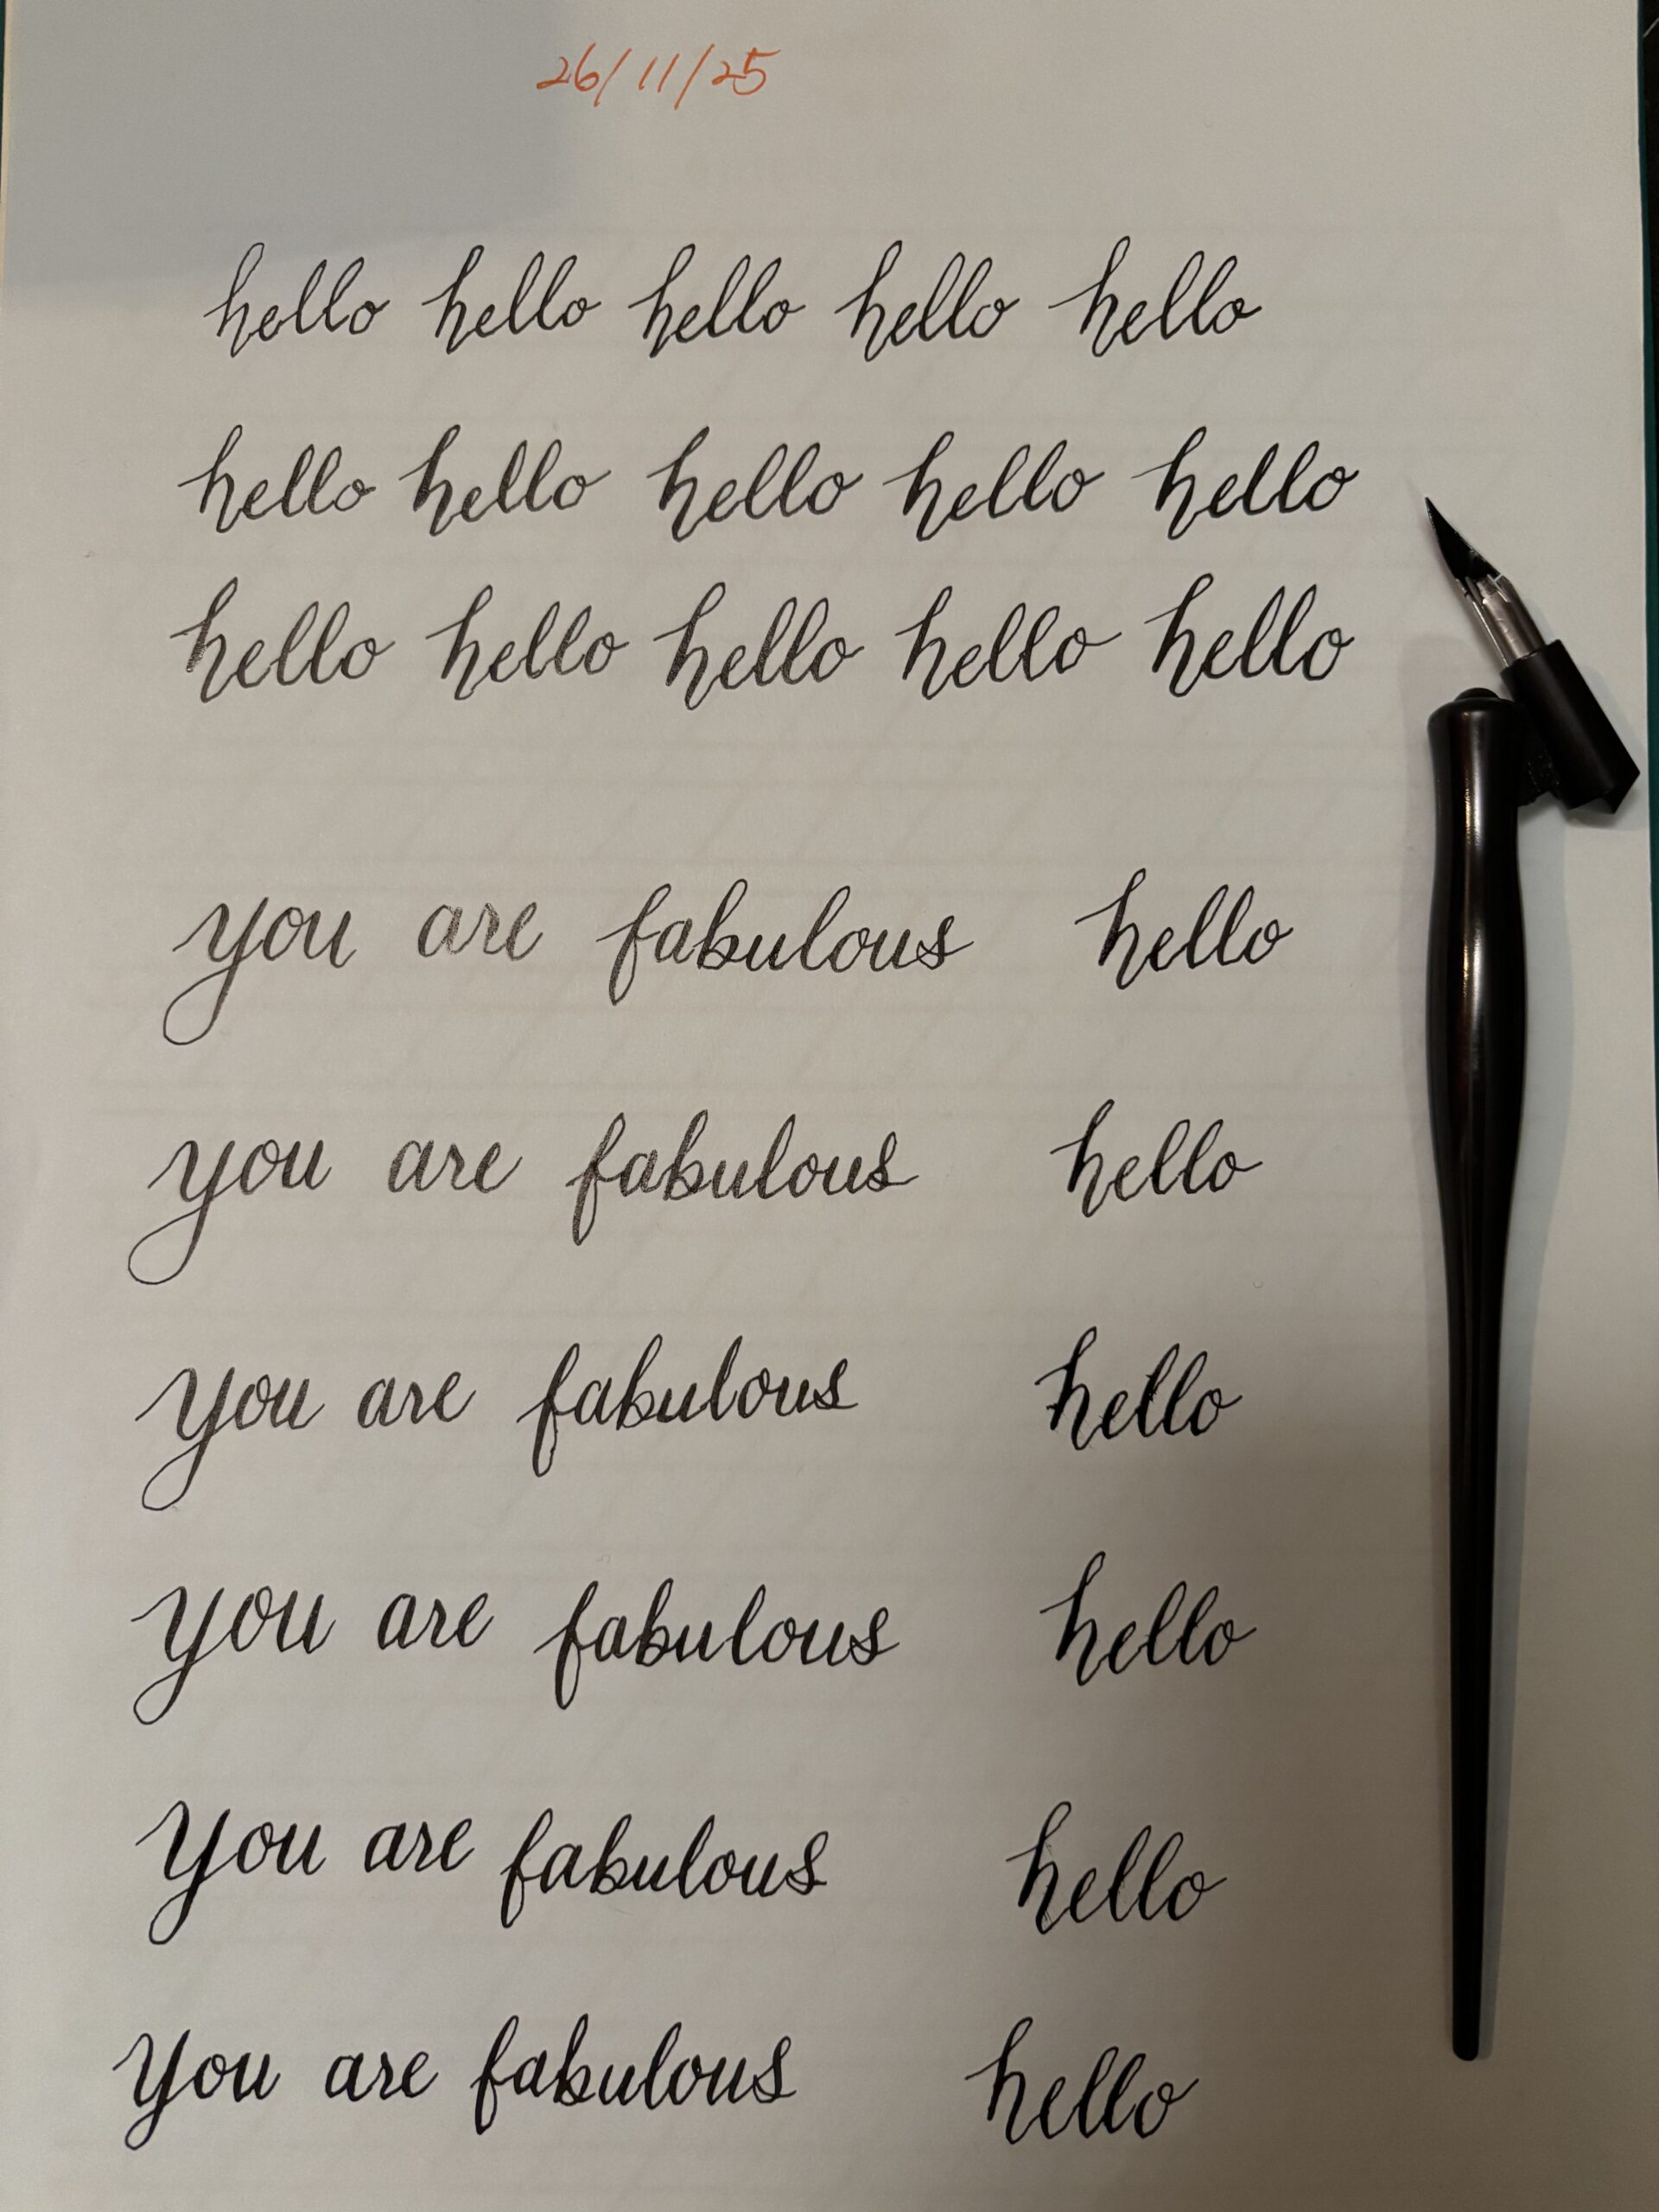 26/11/25
hello hello hello hello hello
hello hello hello hello hello
hello hello hello hello hello
you are fabulous hello
you are fabulous hello
you are fabulous hello
you are fabulous hello
you are fabulous hello
you are fabulous hello